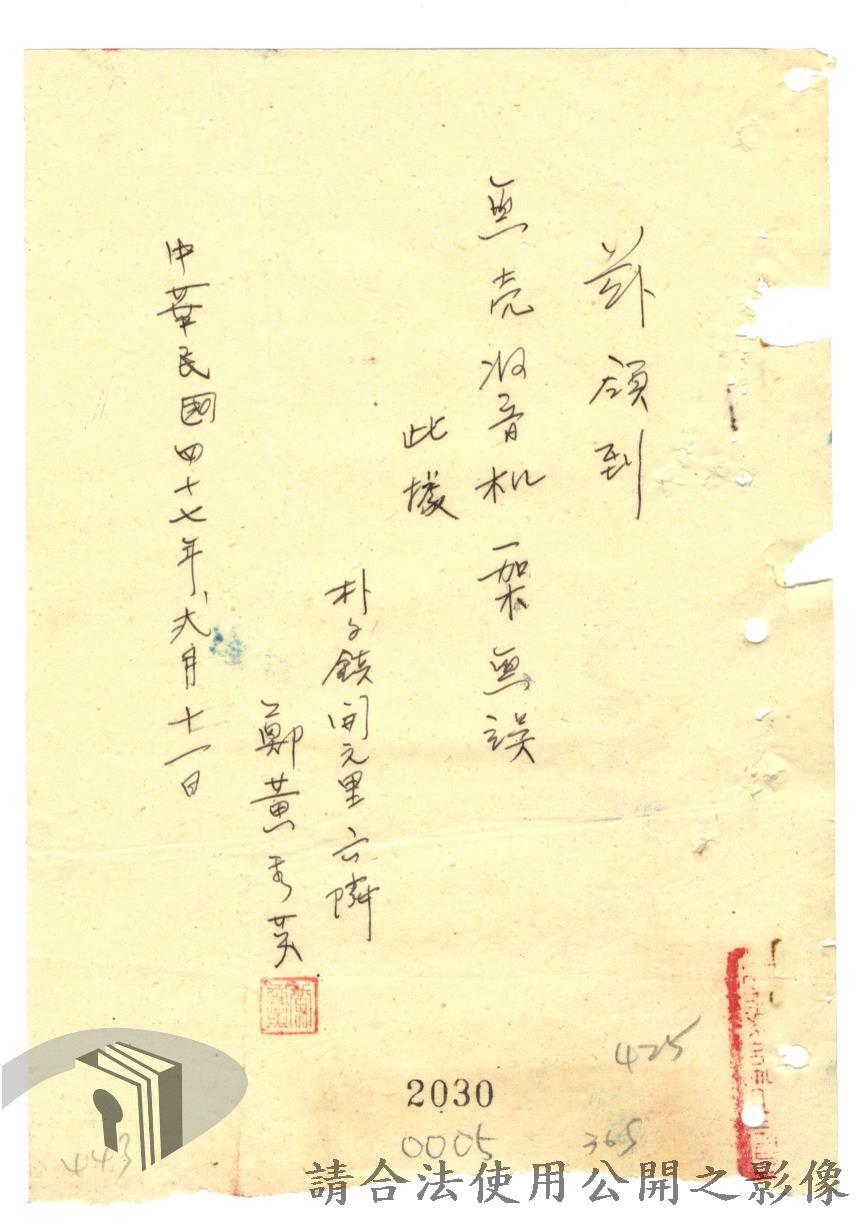 茲領到
無壳收音机一架無誤
此據
朴子鎮開元里六隣
鄭黃秀英
中華民國四十七年六月十一日
425
2030
0005
365
443
請合法使用公開之影像